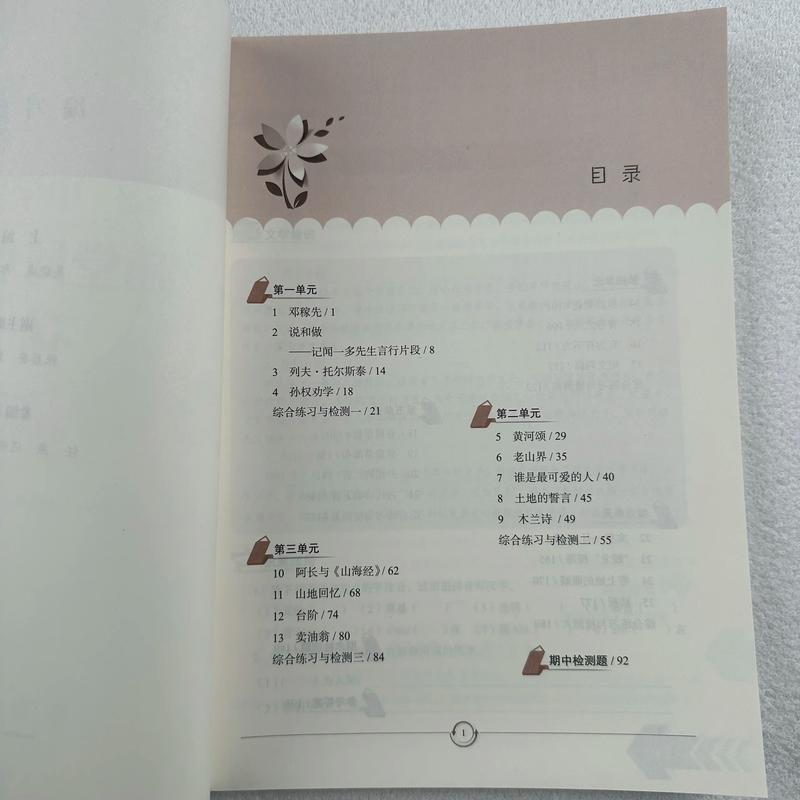 目录
第一单元
1 邓稼先 / 1
2 说和做
——记闻一多先生言行片段 / 8
3 列夫·托尔斯泰 / 14
4 孙权劝学 / 18
综合练习与检测一 / 21
第二单元
5 黄河颂 / 29
6 老山界 / 35
7 谁是最可爱的人 / 40
8 土地的誓言 / 45
9 木兰诗 / 49
综合练习与检测二 / 55
第三单元
10 阿长与《山海经》/ 62
11 山地回忆 / 68
12 台阶 / 74
13 卖油翁 / 80
综合练习与检测三 / 84
期中检测题 / 92
1